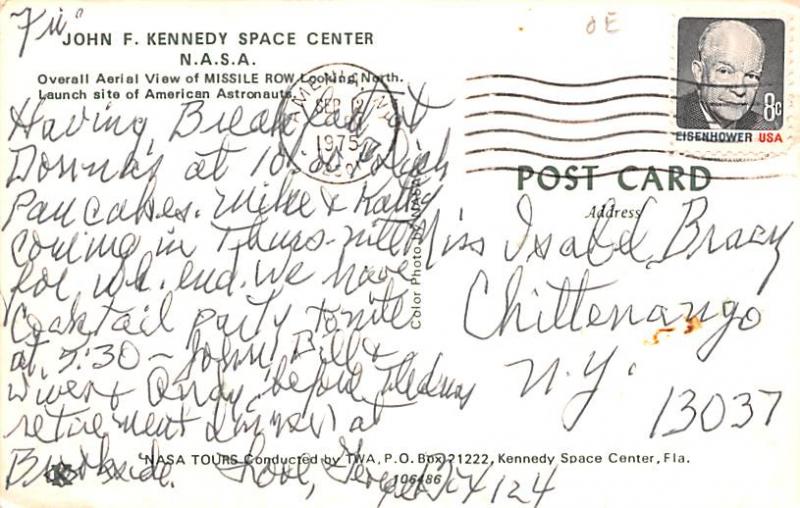 Fri
JOHN F. KENNEDY SPACE CENTER
N.A.S.A.
Overall Aerial View of MISSILE ROW Looking North.
Launch site of American Astronauts.
Having Breakfast at
Donna's at 10:00
Pancakes. Mike & Kathy
coming in Thurs. nite
for wk. end. We have
Cocktail party tonite
at 5:30 - John, Bill &
wives & Andy, before
retirement dinner at
Love,
SEP 12
1975
8c
EISENHOWER USA
POST CARD
Address
Miss Isabel Bracy
Chittenango
N.Y.
13037
Color Photo by NASA
NASA TOURS Conducted by TWA, P.O. Box 21222, Kennedy Space Center, Fla.
106486
4124